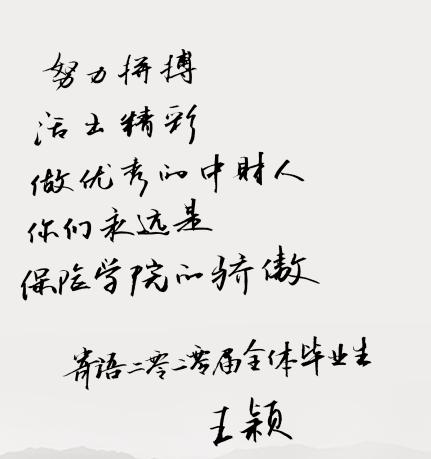 努力拼搏
活出精彩
做优秀的中财人
你们永远是
保险学院的骄傲
寄语二零二零届全体毕业生
王颖